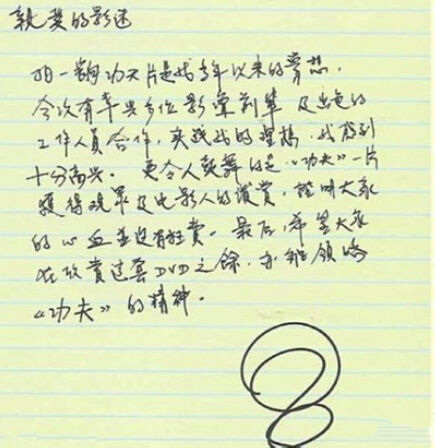 親愛的影迷
拍一齣功夫片是我多年以來的夢想。
今次有幸與多位影壇前輩及出色的
工作人員合作，實踐我的理想，我感到
十分高興。更令人鼓舞的是，“功夫”一片
獲得觀眾及电影人的讚賞，證明大家
的心血並没有白費。最后，希望大家
在欣賞这套DVD之餘，亦能領略
《功夫》的精神。